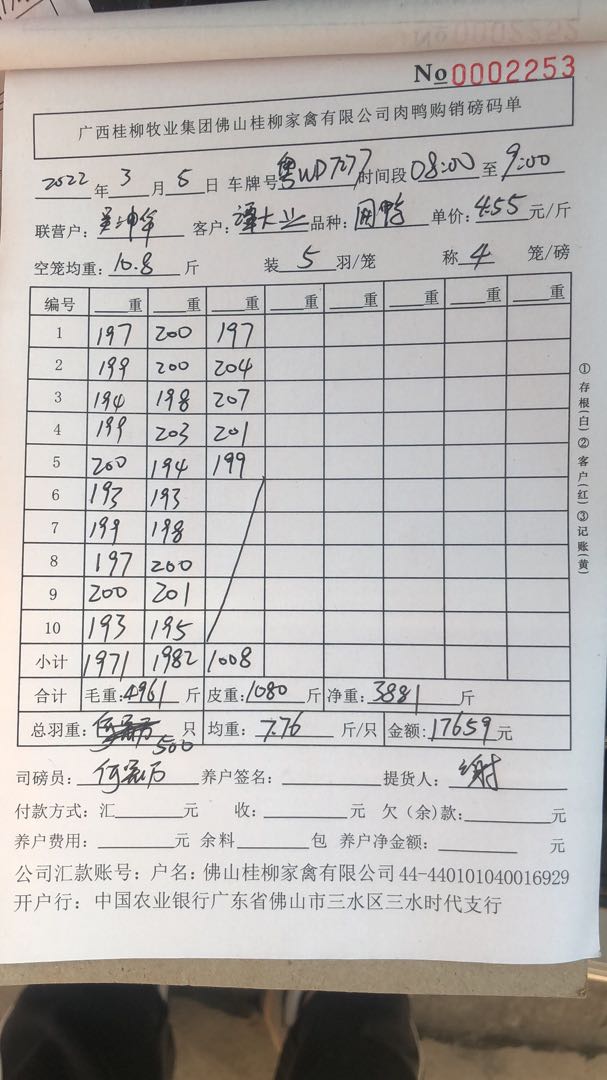 No 0002253
广西桂柳牧业集团佛山桂柳家禽有限公司肉鸭购销磅码单
2022 年 3 月 5 日 车牌号 粤WD7277 时间段 08:00 至 9:00
联营户: 客户: 谭大业 品种: 单价: 4.55 元/斤
空笼均重: 10.8 斤 装 5 羽/笼 称 4 笼/磅
编号 重 重 重 重 重 重 重 重
1 197 200 197
2 199 200 204
3 194 198 207
4 199 203 201
5 200 194 199
6 193 193
7 199 198
8 197 200
9 200 201
10 193 195
小计 1971 1982 1008
合计 毛重: 4961 斤 皮重: 1080 斤 净重: 3881 斤
总羽重: 500 只 均重: 7.76 斤/只 金额: 17659 元
司磅员: 养户签名: 提货人:
付款方式: 汇 元 收: 元 欠(余)款: 元
养户费用: 元 余料 包 养户净金额: 元
公司汇款账号: 户名: 佛山桂柳家禽有限公司 44-440101040016929
开户行: 中国农业银行广东省佛山市三水区三水时代支行
①存根(白)②客户(红)③记账(黄)